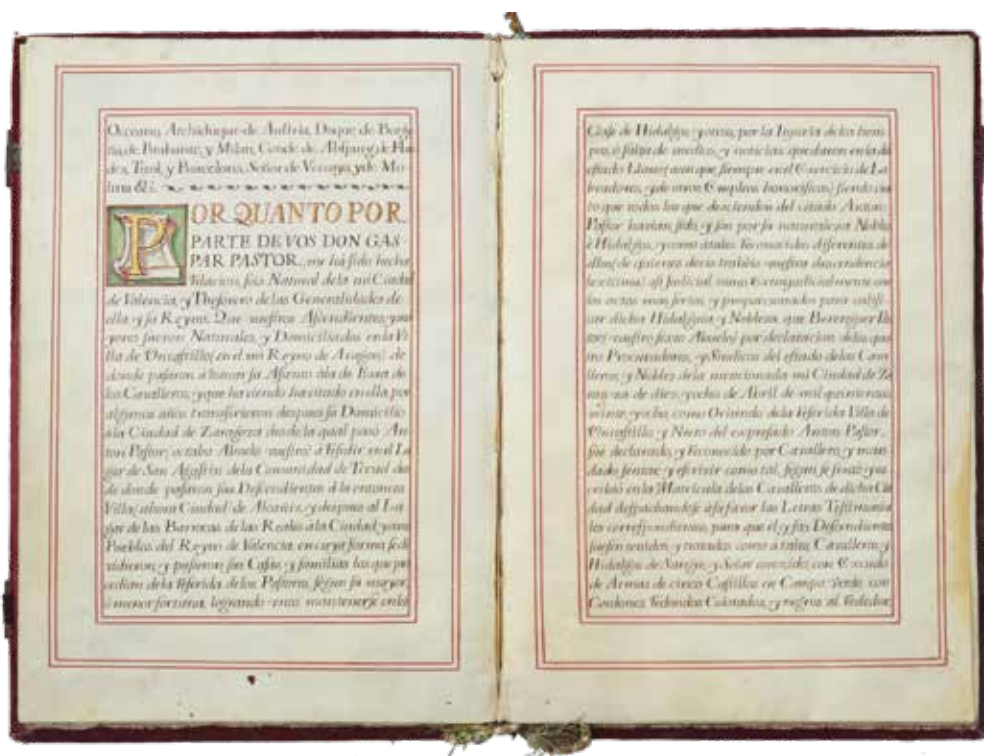 Occeano, Archiduque de Austria, Duque de Borgo
ña, de Brabante, y Milan, Conde de Abspurg, de Flan
des, Tirol, y Barcelona, Señor de Vizcaya, y de Mo-
lina &c.
POR QUANTO POR
PARTE DE VOS DON GAS-
PAR PASTOR, me ha sido hecha
Relacion, sois Natural de la mi Ciudad
de Valencia, y Thesorero de las Generalidades de
ella, y su Reyno. Que vuestros Ascendientes, y ma
yores fueron Naturales, y Domiciliados en la Vi
lla de Uncastillo (en el mi Reyno de Aragon) de
donde pasaron á tomar su Asiento á la de Exea de
los Cavalleros, y que haviendo havitado en ella por
algunos años, transfirieron despues su Domicilio
á la Ciudad de Zaragoza desde la qual pasó An
ton Pastor, octabo Abuelo vuestro á Residir en el Lu
gar de San Agustin de la Comunidad de Teruel des
de donde pasaron sus Descendientes á la entonces
Villa, (ahora Ciudad de Alcañiz, y despues al Lu
gar de las Barracas de las Reales á la Ciudad, y otros
Pueblos del Reyno de Valencia, en cuya forma se di
vidieron, y pusieron sus Casas, y familias los que pro
cedian de la Referida de los Pastores, segun su mayor,
ó menor fortuna, logrando unos mantenerse en la
Clase de Hidalgos, y otros, por la Injuria de los tiem
pos, ó falta de medios, y noticias quedaron en la de
estado Llano, aun que siempre en el Exercicio de La
bradores, y de otros Empleos honorificos, siendo cier
to que todos los que descienden del citado Anton
Pastor havian sido, y son por su naturaleza Nobles
é Hidalgos, y como á tales Reconocidos differentes de
ellos, de quienes devia trahia vuestra descendencia
lexitima, asi Judicial, como Extrajudicialmente en
los actos mas serios, y proporcionados para califi-
car dicha Hidalguia, y Nobleza, que Berenguer Pas
tor, vuestro sexto Abuelo, por declaracion de los qua
tro Procuradores, y Sindicos del estado de los Cava
lleros, y Nobles de la mencionada mi Ciudad de Za
ragoza de diez, y ocho de Abril de mil quinientos
veinte, y ocho, como Oriundo de la Referida Villa de
Uncastillo, y Nieto del expresado Anton Pastor,
fue declarado, y Reconocido por Cavallero, y man
dado sentar, y escrivir como tal, segun se sentó, y es
crivió en la Matricula de los Cavalleros de dicha Ciu
dad despachandose á su favor las Letras Testimonia
les correspondientes, para que él, y sus Descendientes
fuesen tenidos, y tratados como á tales Cavalleros, y
Hidalgos de Sangre, y Solar conocido, con Escudo
de Armas de cinco Castillos en Campo Verde, con
Cordones Redondos Colorados, y negros al Rededor